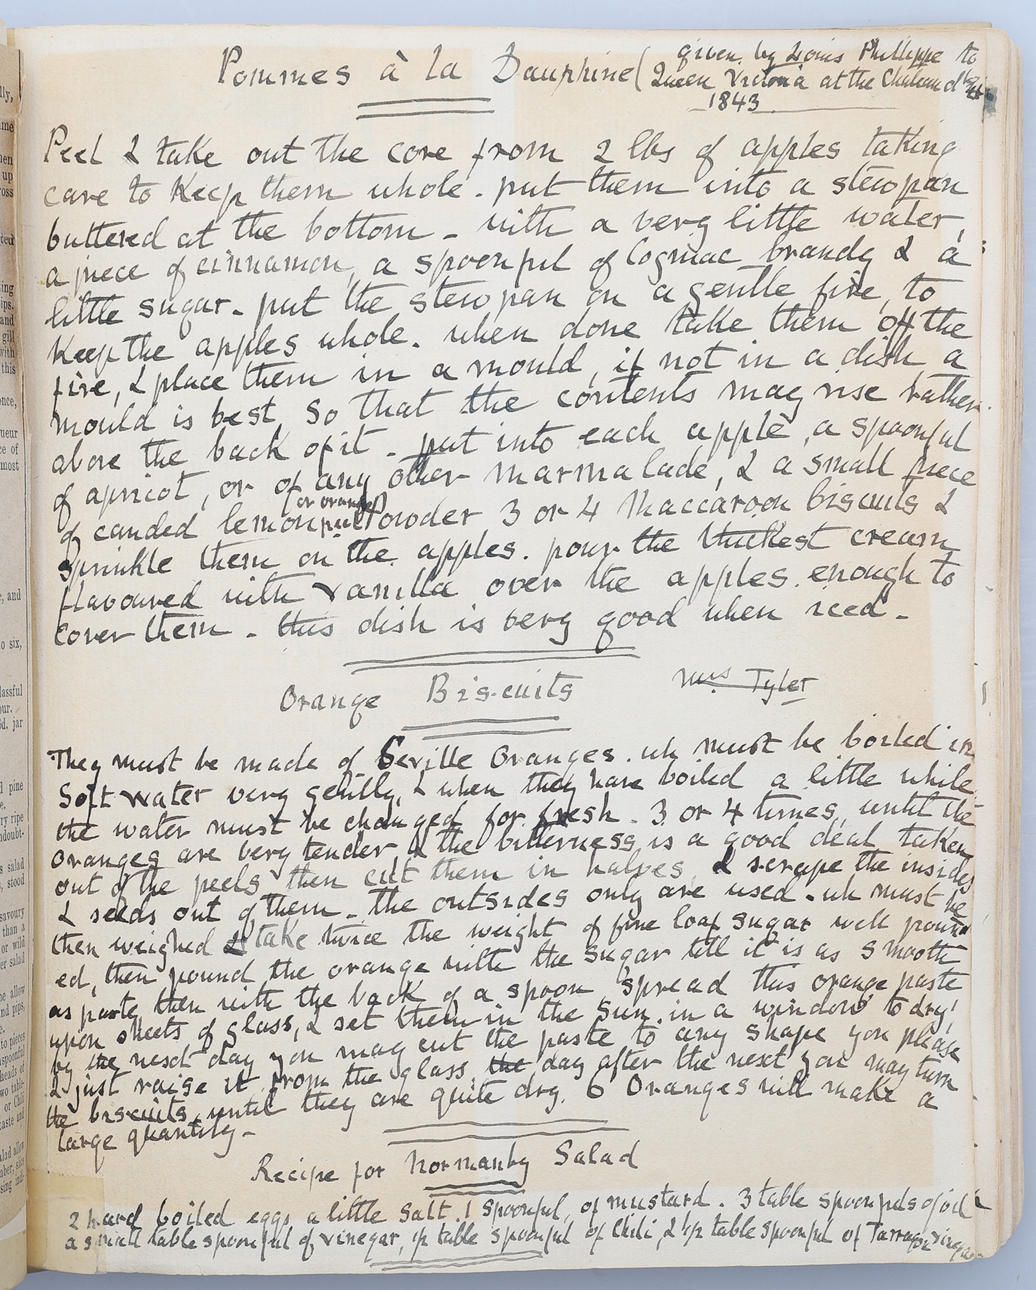 Pommes à la Dauphine (given by Louis Phillippe to
Queen Victoria at the Chateau d'Eu
1843
Peel & take out the core from 2 lbs of apples taking
care to keep them whole. put them into a stewpan
buttered at the bottom - with a very little water,
a piece of cinnamon, a spoonful of Cogniac brandy & a
little sugar. put the stewpan on a gentle fire, to
keep the apples whole. when done take them off the
fire, & place them in a mould, if not in a dish a
mould is best so that the contents may rise rather
above the back of it - put into each apple, a spoonful
of apricot, or of any other marmalade, & a small piece
of candied lemon (or orange) peel Powder 3 or 4 Maccaroon biscuits &
sprinkle them on the apples. pour the thickest cream
flavoured with vanilla over the apples. enough to
cover them - this dish is very good when iced -
Orange Biscuits Mrs Tyler
They must be made of Seville Oranges. wh must be boiled in
Soft water very gently, & when they have boiled a little while
the water must be changed for fresh. 3 or 4 times, until the
oranges are very tender & the bitterness is a good deal taken
out of the peels then cut them in halves, & scrape the insides
& seeds out of them - the outsides only are used - wh must be
then weighed & take twice the weight of fine loaf sugar well pound
ed, then pound the orange with the sugar till it is as smooth
as paste, then with the back of a spoon spread this orange paste
upon sheets of glass, & set them in the sun in a window to dry,
by the next day you may cut the paste to any shape you please
& just raise it from the glass the day after the next you may turn
the biscuits until they are quite dry. 6 Oranges will make a
large quantity -
Recipe for Normanby Salad
2 hard boiled eggs, a little salt. 1 spoonful, of mustard. 3 table spoonfuls of oil
a small table spoonful of vinegar, 1/2 table spoonful of Chili, & 1/2 table spoonful of Tarragon vinegar